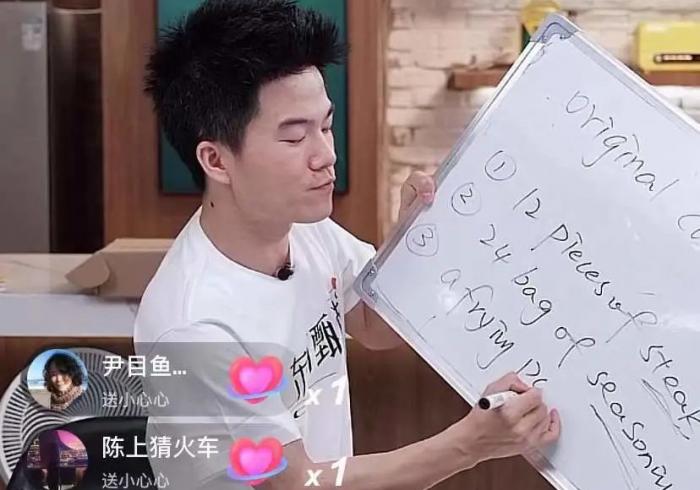 original
① 12 pieces of steak
② 24 bag of
③ a frying
东 甄
尹目鱼...
送小心心
x1
陈上猜火车
送小心心
x1